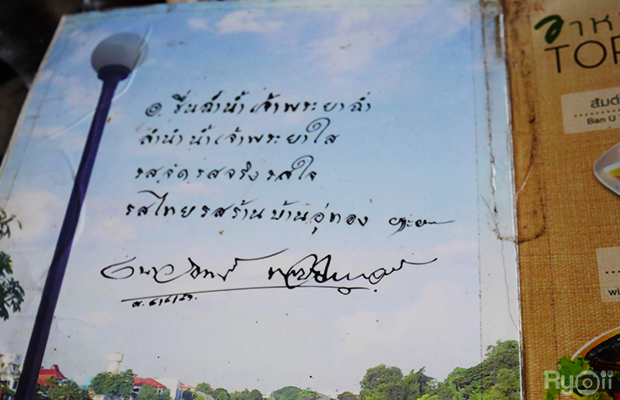 ๏ รื่นลำน้ำเจ้าพระยาฉ่ำ
ลำนำน้ำเจ้าพระยาใส
รสจัดรสจริงรสใจ
รสไทยรสร้านบ้านอู่ทอง
อาห
TOP
ส้มตำ
Ban U
wi
Ryoii